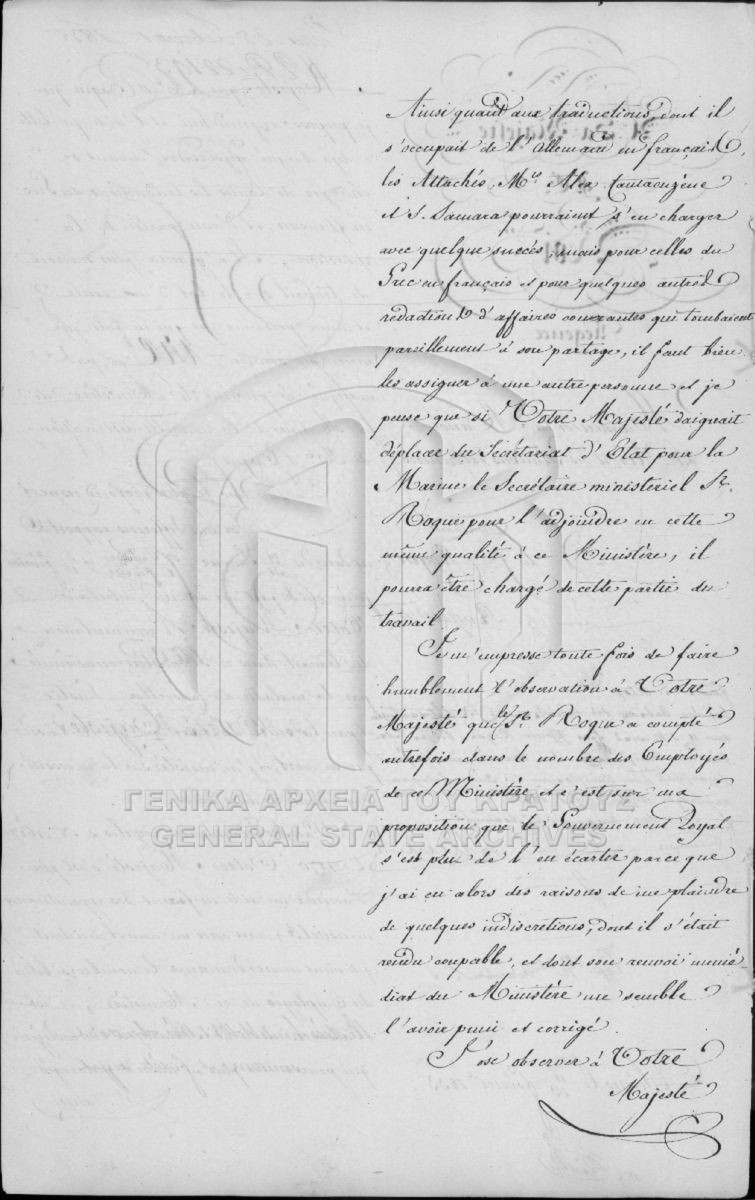 Ainsi quand aux traductions, dont il
s'occupait de l'allemand en français,
les Attachés, Mrs Alex. Cantacuzène
et S. Samara pourraient s'en charger
avec quelque succés, mais pour celles du
Grec en français et pour quelques autres
redactions d'affaires courantes qui tombaient
pareillement à son partage, il faut bien
les assigner à une autre personne et je
pense que si Votre Majesté daignait
déplacer du Sécrétariat d'Etat pour la
Marine le Secrétaire ministeriel Sr.
Roque pour l'adjoindre en cette
même qualité à ce Ministère, il
pourra être chargé de cette partie du
travail.
Je m'empresse toute fois de faire
humblement l'observation à Votre
Majesté que le Sr. Roque a compté
autrefois dans le nombre des Employés
de ce Ministère et c'est sur ma
proposition que le Gouvernement Royal
s'est plu de l'en écarter parce que
j'ai eu alors des raisons de me plaindre
de quelques indiscretions, dont il s'était
rendu coupable, et dont son renvoi immé
diat du Ministère me semble
l'avoir puni et corrigé.
J'ose observer à Votre
Majesté
ΓΕΝΙΚΑ ΑΡΧΕΙΑ ΤΟΥ ΚΡΑΤΟΥΣ
GENERAL STATE ARCHIVES